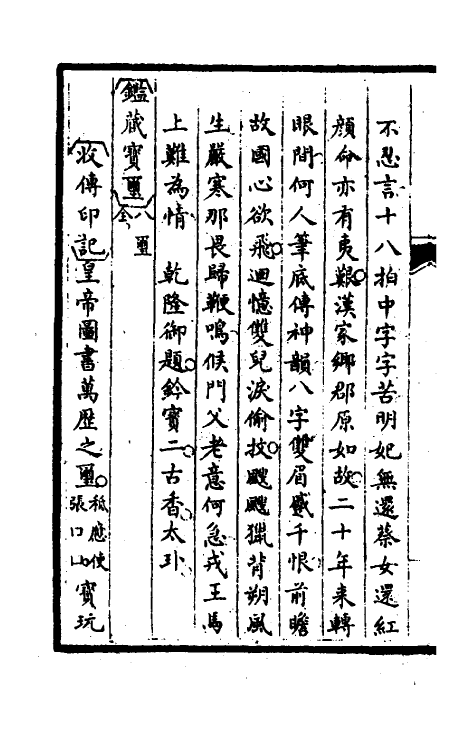 不忍言十八拍中字字苦明妃無還蔡女還紅
顔命亦有夷艱漢家鄉郡原如故二十年来轉
眼間何人筆底傳神韻八字雙眉蹙千恨前瞻
故國心欲飛迴憶雙兒淚偷抆颼颼獵背朔風
生嚴寒那畏歸鞭鳴候門父老意何急戎王馬
上難為情　乾隆御題鈐寶二古香太卦
鑑藏寶璽
八璽
全
收傳印記皇帝圖書萬歷之璽
秪應使
張口山
寶玩